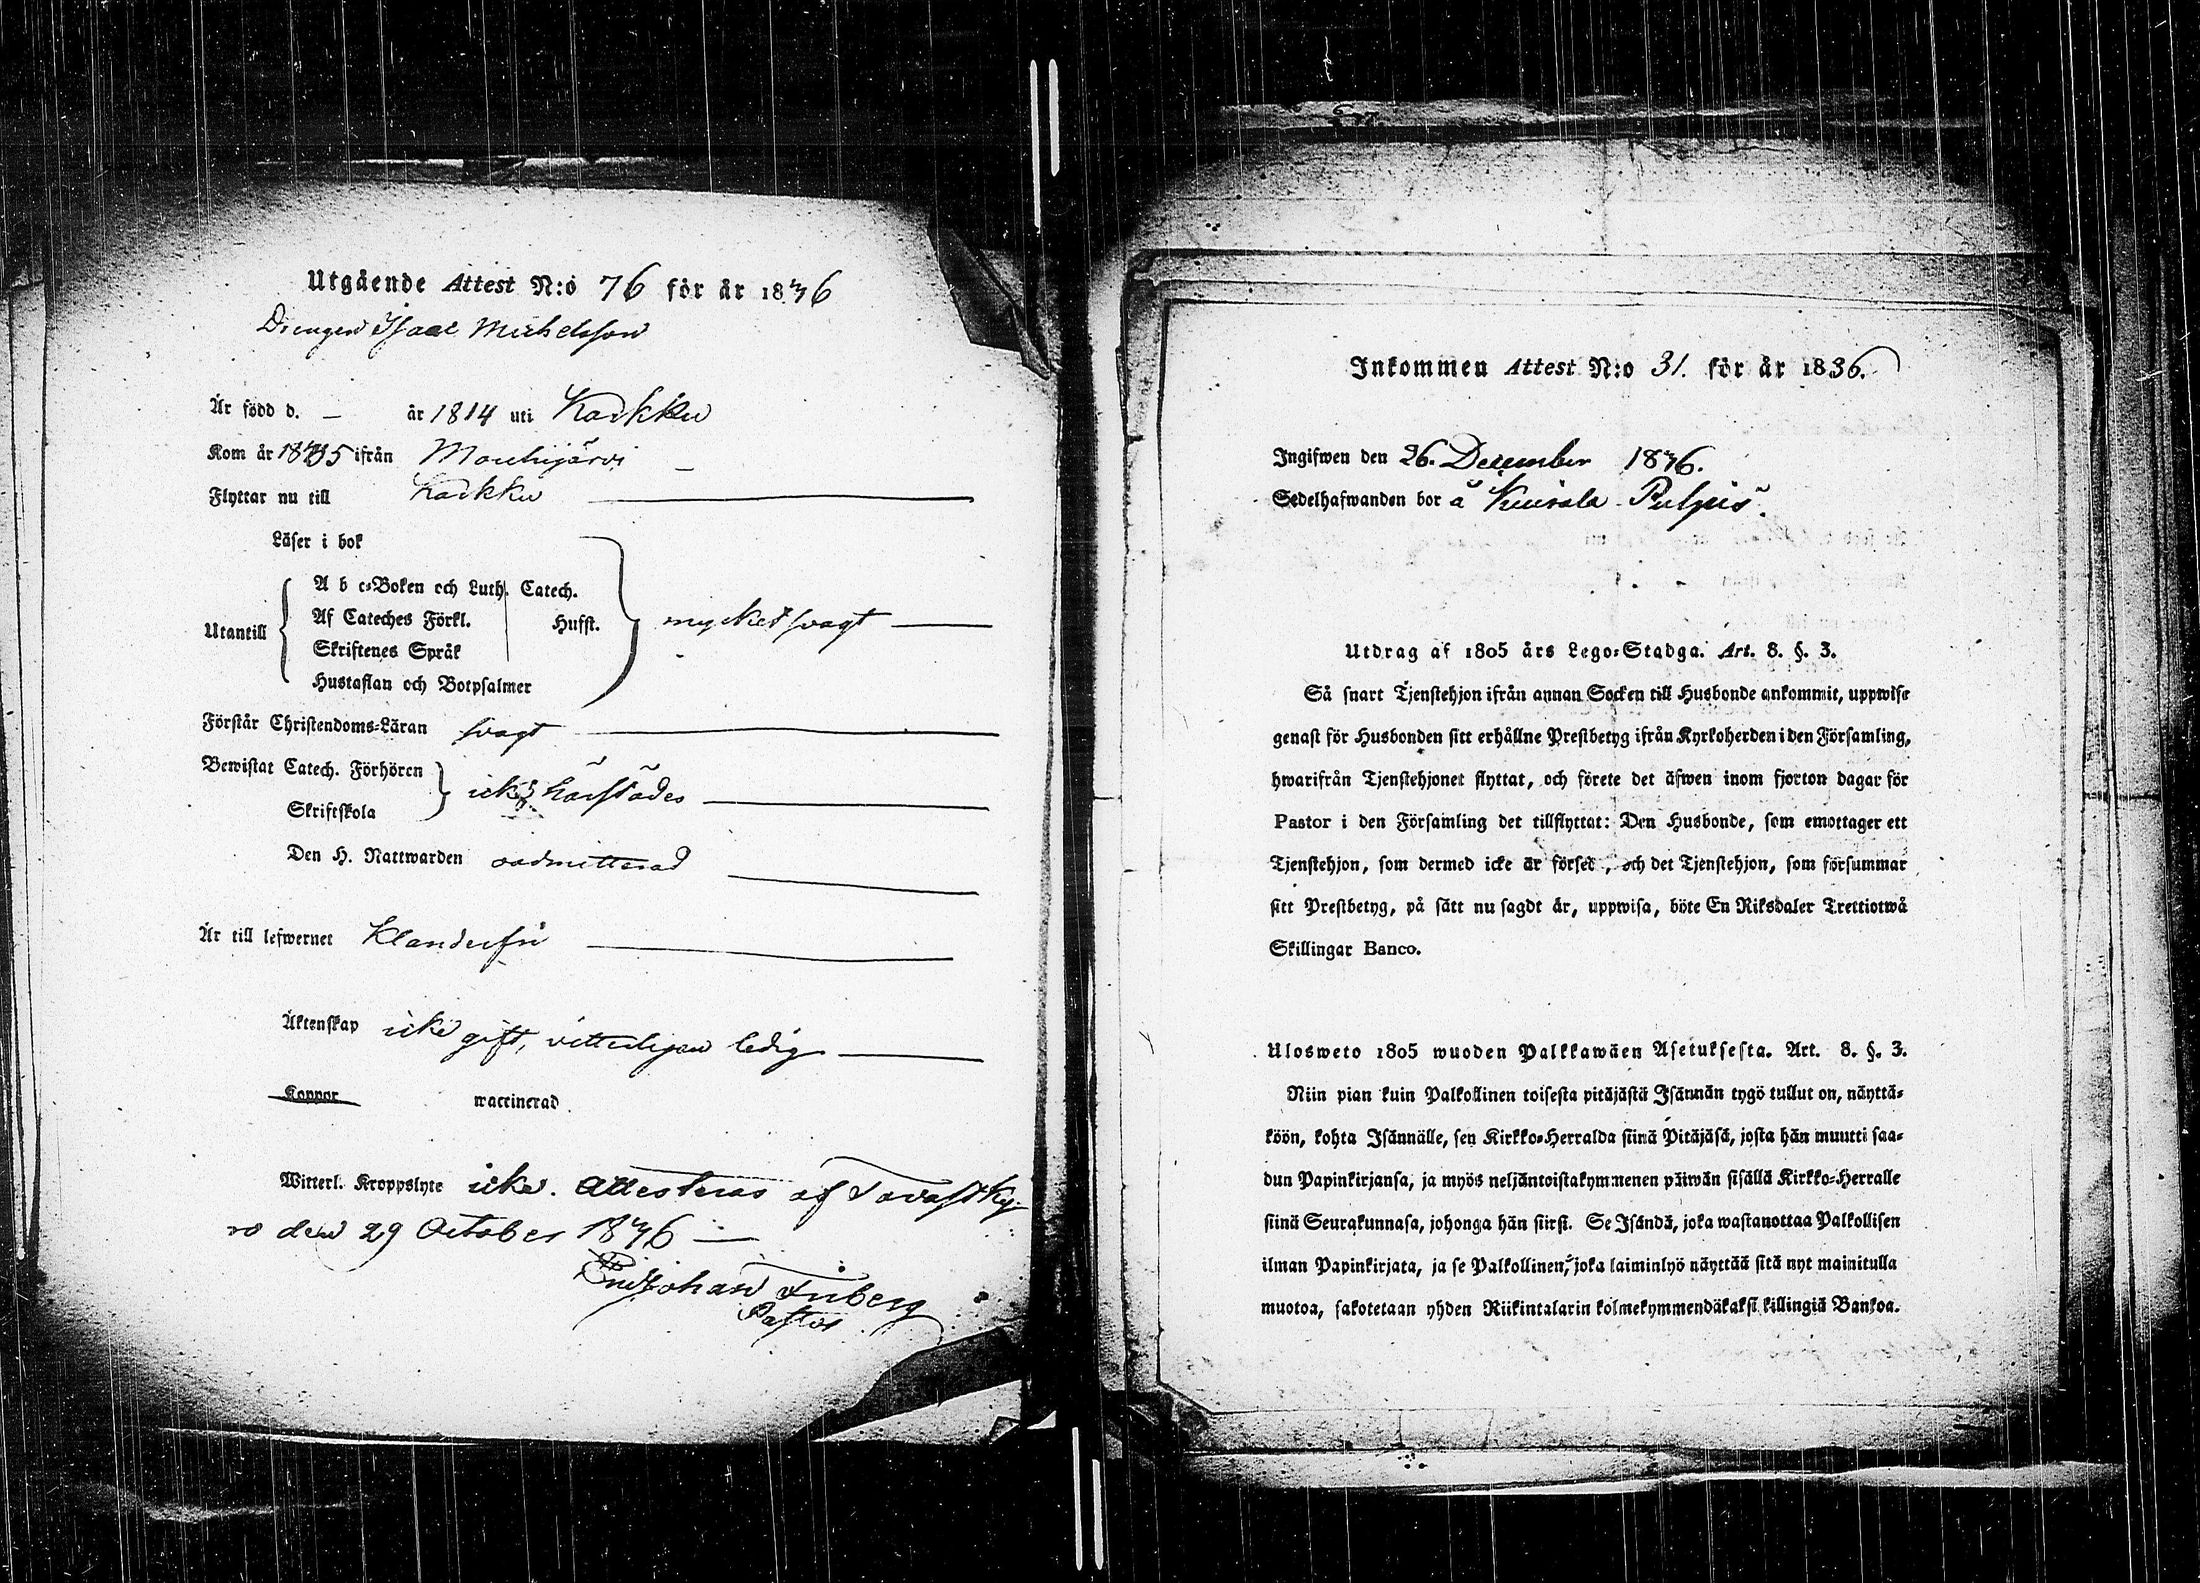 Utgående Attest N:o 76 för år 1836
Drengen Isaac Michelsson
Är född d. — år 1814 uti Karkku
Kom år 1835 ifrån Mouhijärvi —
Flyttar nu till Karkku
Läser i bok
A b c-Boken och Luth. Catech.
Af Cateches Förkl. Hufst.
Utantill mycket svagt
Skriftenes Språk
Hustaflan och Botpsalmer
Förstår Christendoms-Läran svagt
Bewistat Catech. Förhören
icke härstädes
Skriftskola
Den H. Nattwarden oadmitterad
Är till lefwernet Klanderfri
Äktenskap icke gift, vetterligen ledig
Koppor waccinerad
Witterl. Kroppslyte icke. Attesteras af Tavastky-
ro den 29 October 1836 —
Johan Friberg
Pastor
Inkommen Attest N:o 31. för år 1836.
Ingifwen den 26. December 1836.
Sedelhafwanden bor å
Utdrag af 1805 års Lego-Stadga. Art. 8. §. 3.
Så snart Tjenstehjon ifrån annan Socken till Husbonde ankommit, uppwise
genast för Husbonden sitt erhållne Prestbetyg ifrån Kyrkoherden i den Församling,
hwarifrån Tjenstehjonet flyttat, och förete det äfwen inom fjorton dagar för
Pastor i den Församling det tillflyttat: Den Husbonde, som emottager ett
Tjenstehjon, som dermed icke är försed, och det Tjenstehjon, som försummar
sitt Prestbetyg, på sätt nu sagdt är, uppwisa, böte En Riksdaler Trettiotwå
Skillingar Banco.
Ulosweto 1805 wuoden Palkkawäen Asetuksesta. Art. 8. §. 3.
Niin pian kuin Palkollinen toisesta pitäjästä Isännän tygö tullut on, näyttä-
köön, kohta Isännälle, sen Kirkko-Herralda siinä Pitäjäsä, josta hän muutti saa-
dun Papinkirjansa, ja myös neljäntoistakymmenen päiwän sisällä Kirkko-Herralle
siinä Seurakunnasa, johonga hän siirsi. Se Isändä, joka wastanottaa Palkollisen
ilman Papinkirjata, ja se Palkollinen, joka laiminlyö näyttää sitä nyt mainitulla
muotoa, sakotetaan yhden Riikintalarin kolmekymmendäkaksi killingiä Bankoa.